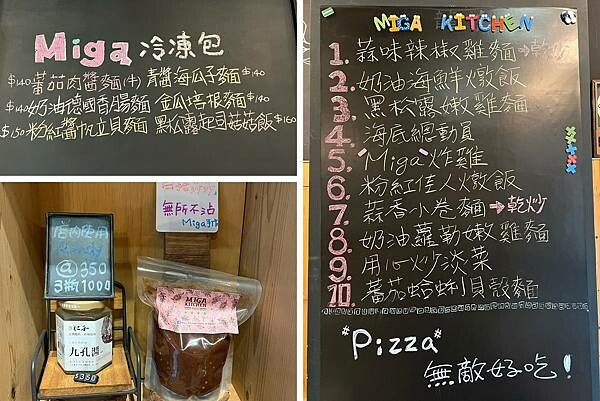 Miga 冷凍包
$140 蕃茄肉醬麵(牛) 青醬海瓜子麵 $140
$140 奶油德國香腸麵 金瓜培根麵 $140
$150 粉紅醬帆立貝麵 黑松露起司菇菇飯 $160
店內使用
@350
3瓶1000
九孔醬
$350
無所不沾
Miga
MIGA
KITCHEN
MIGA KITCHEN
1. 蒜味辣椒雞麵→乾炒
2. 奶油海鮮燉飯
3. 黑松露嫩雞麵
4. 海底總動員
5. "Miga"炸雞
6. 粉紅佳人燉飯
7. 蒜香小卷麵→乾炒
8. 奶油蘿勒嫩雞麵
9. 用心炒淡菜
10. 蕃茄蛤蜊貝殼麵
"Pizza"
無敵好吃!